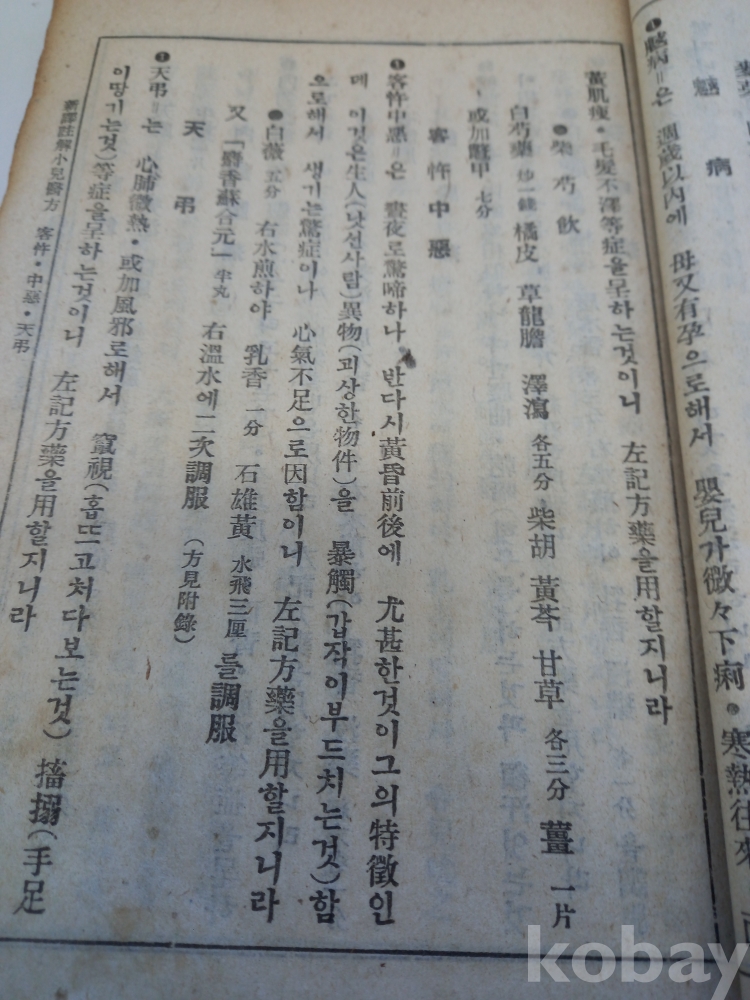 魃病
❶魃病=은 週歲以內에 母又有孕으로해서 嬰兒가微々下痢•寒熱往來
黃肌瘦•毛髮不澤等症을呈하는것이니 左記方藥을用할지니라
●柴芍飮
白芍藥 炒一錢 橘皮 草龍膽 澤瀉 各五分 柴胡 黃芩 甘草 各三分 薑 一片
或加鱉甲 七分
客忤中惡
❶客忤中惡=은 晝夜로驚啼하나 반다시黃昏前後에 尤甚한것이그의特徵인
데 이것은生人(낫선사람)異物(괴상한物件)을 暴觸(갑작이부드치는것)함
으로해서 생기는驚症이나 心氣不足으로因함이니 左記方藥을用할지니라
●白薇 五分 右水煎하야 乳香 一分. 石雄黃 水飛三厘 를調服
又「麝香蘇合元」半丸 右溫水에二次調服 (方見附錄)
天弔
❶天弔=는 心肺微熱•或加風邪로해서 竄視(홉뜨고처다보는것) 搐搦(手足
이땅기는것)等症을呈하는것이니 左記方藥을用할지니라
新譯註解小兒醫方 客忤•中惡•天弔
kobay